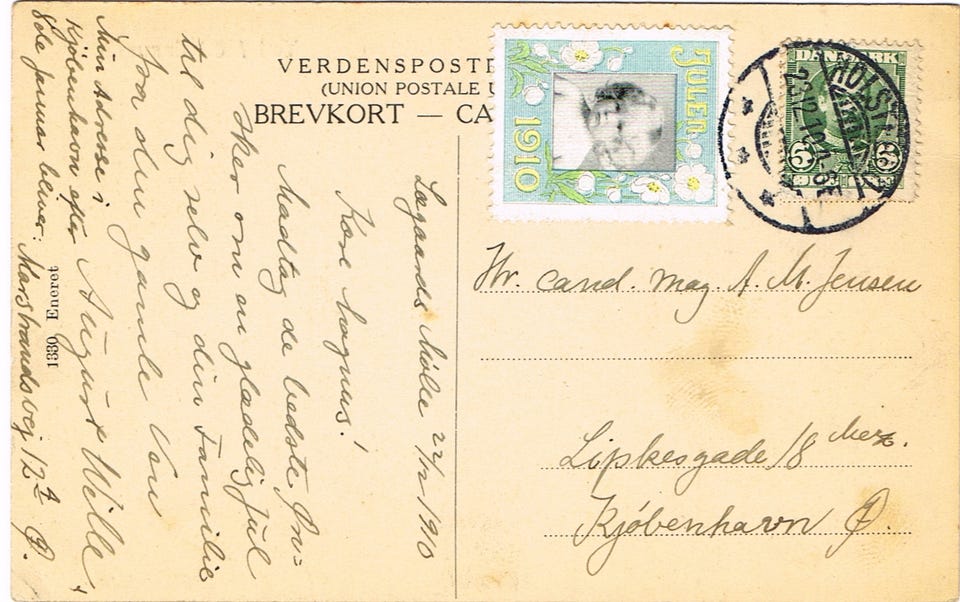 VERDENSPOSTF
(UNION POSTALE U
BREVKORT — CA
JULEN
1910
DANMARK
HOLST
23.12.10.
5 5
Lægaards Mølle 22/12 1910
Kære Magnus!
Modtag de bedste Øn=
sker om en glædelig Jul
til dig selv og din Familie
fra din gamle Ven
August Wille.
Min Adresse i
Kjøbenhavn efter
8de Januar bliver:
Marstrandsvej 12 4 Ø.
1330 Eneret
Hr. cand. mag. A. M. Jensen
Lipkesgade 18
Kjøbenhavn Ø.